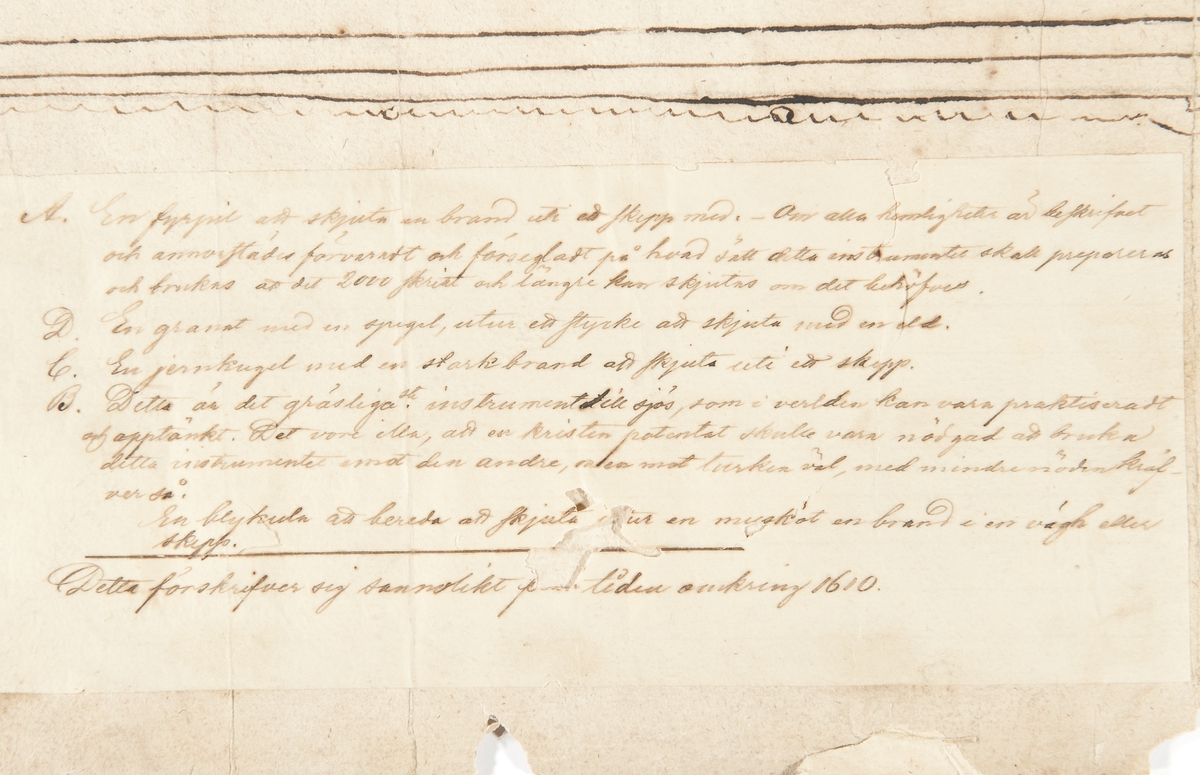 A. En fyrpil att skjuta en brand uti ett skepp med. – Om alla hemligheter är beskrifvet
och annorstädes förvaradt och försegladt på hvad sätt detta instrumentet skall preporeras
och brukas at det 2000 skridt och längre kan skjutas om det behöfves.
D. En granat med en spegel, utur ett stycke att skjuta med en eld.
C. En jernkugel med en stark brand att skjuta uti ett skepp.
B. Detta är det gräsligaste instrument till sjös, som i verlden kan vara praktiseradt
apptänkt. Det vore illa, att en kristen potentat skulle vara nödgad att bruka
detta instrumentet emot den andre, men mot turken väl, med mindre nöden kräf-
ver så.
En blykula att bereda att skjuta utur en musköt en brand i en vägh eller
skepp.
Detta förskrifver sig sannolikt från tiden omkring 1610.